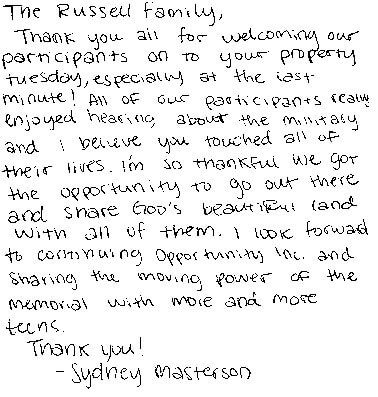 The Russell Family,
Thank you all for welcoming our
participants on to your property
tuesday, especially at the last
minute! All of our participants really
enjoyed hearing about the military
and I believe you touched all of
their lives. I'm so thankful we got
the opportunity to go out there
and share God's beautiful land
with all of them. I look forward
to continuing Opportunity Inc. and
sharing the moving power of the
memorial with more and more
teens.
Thank you!
- Sydney Masterson